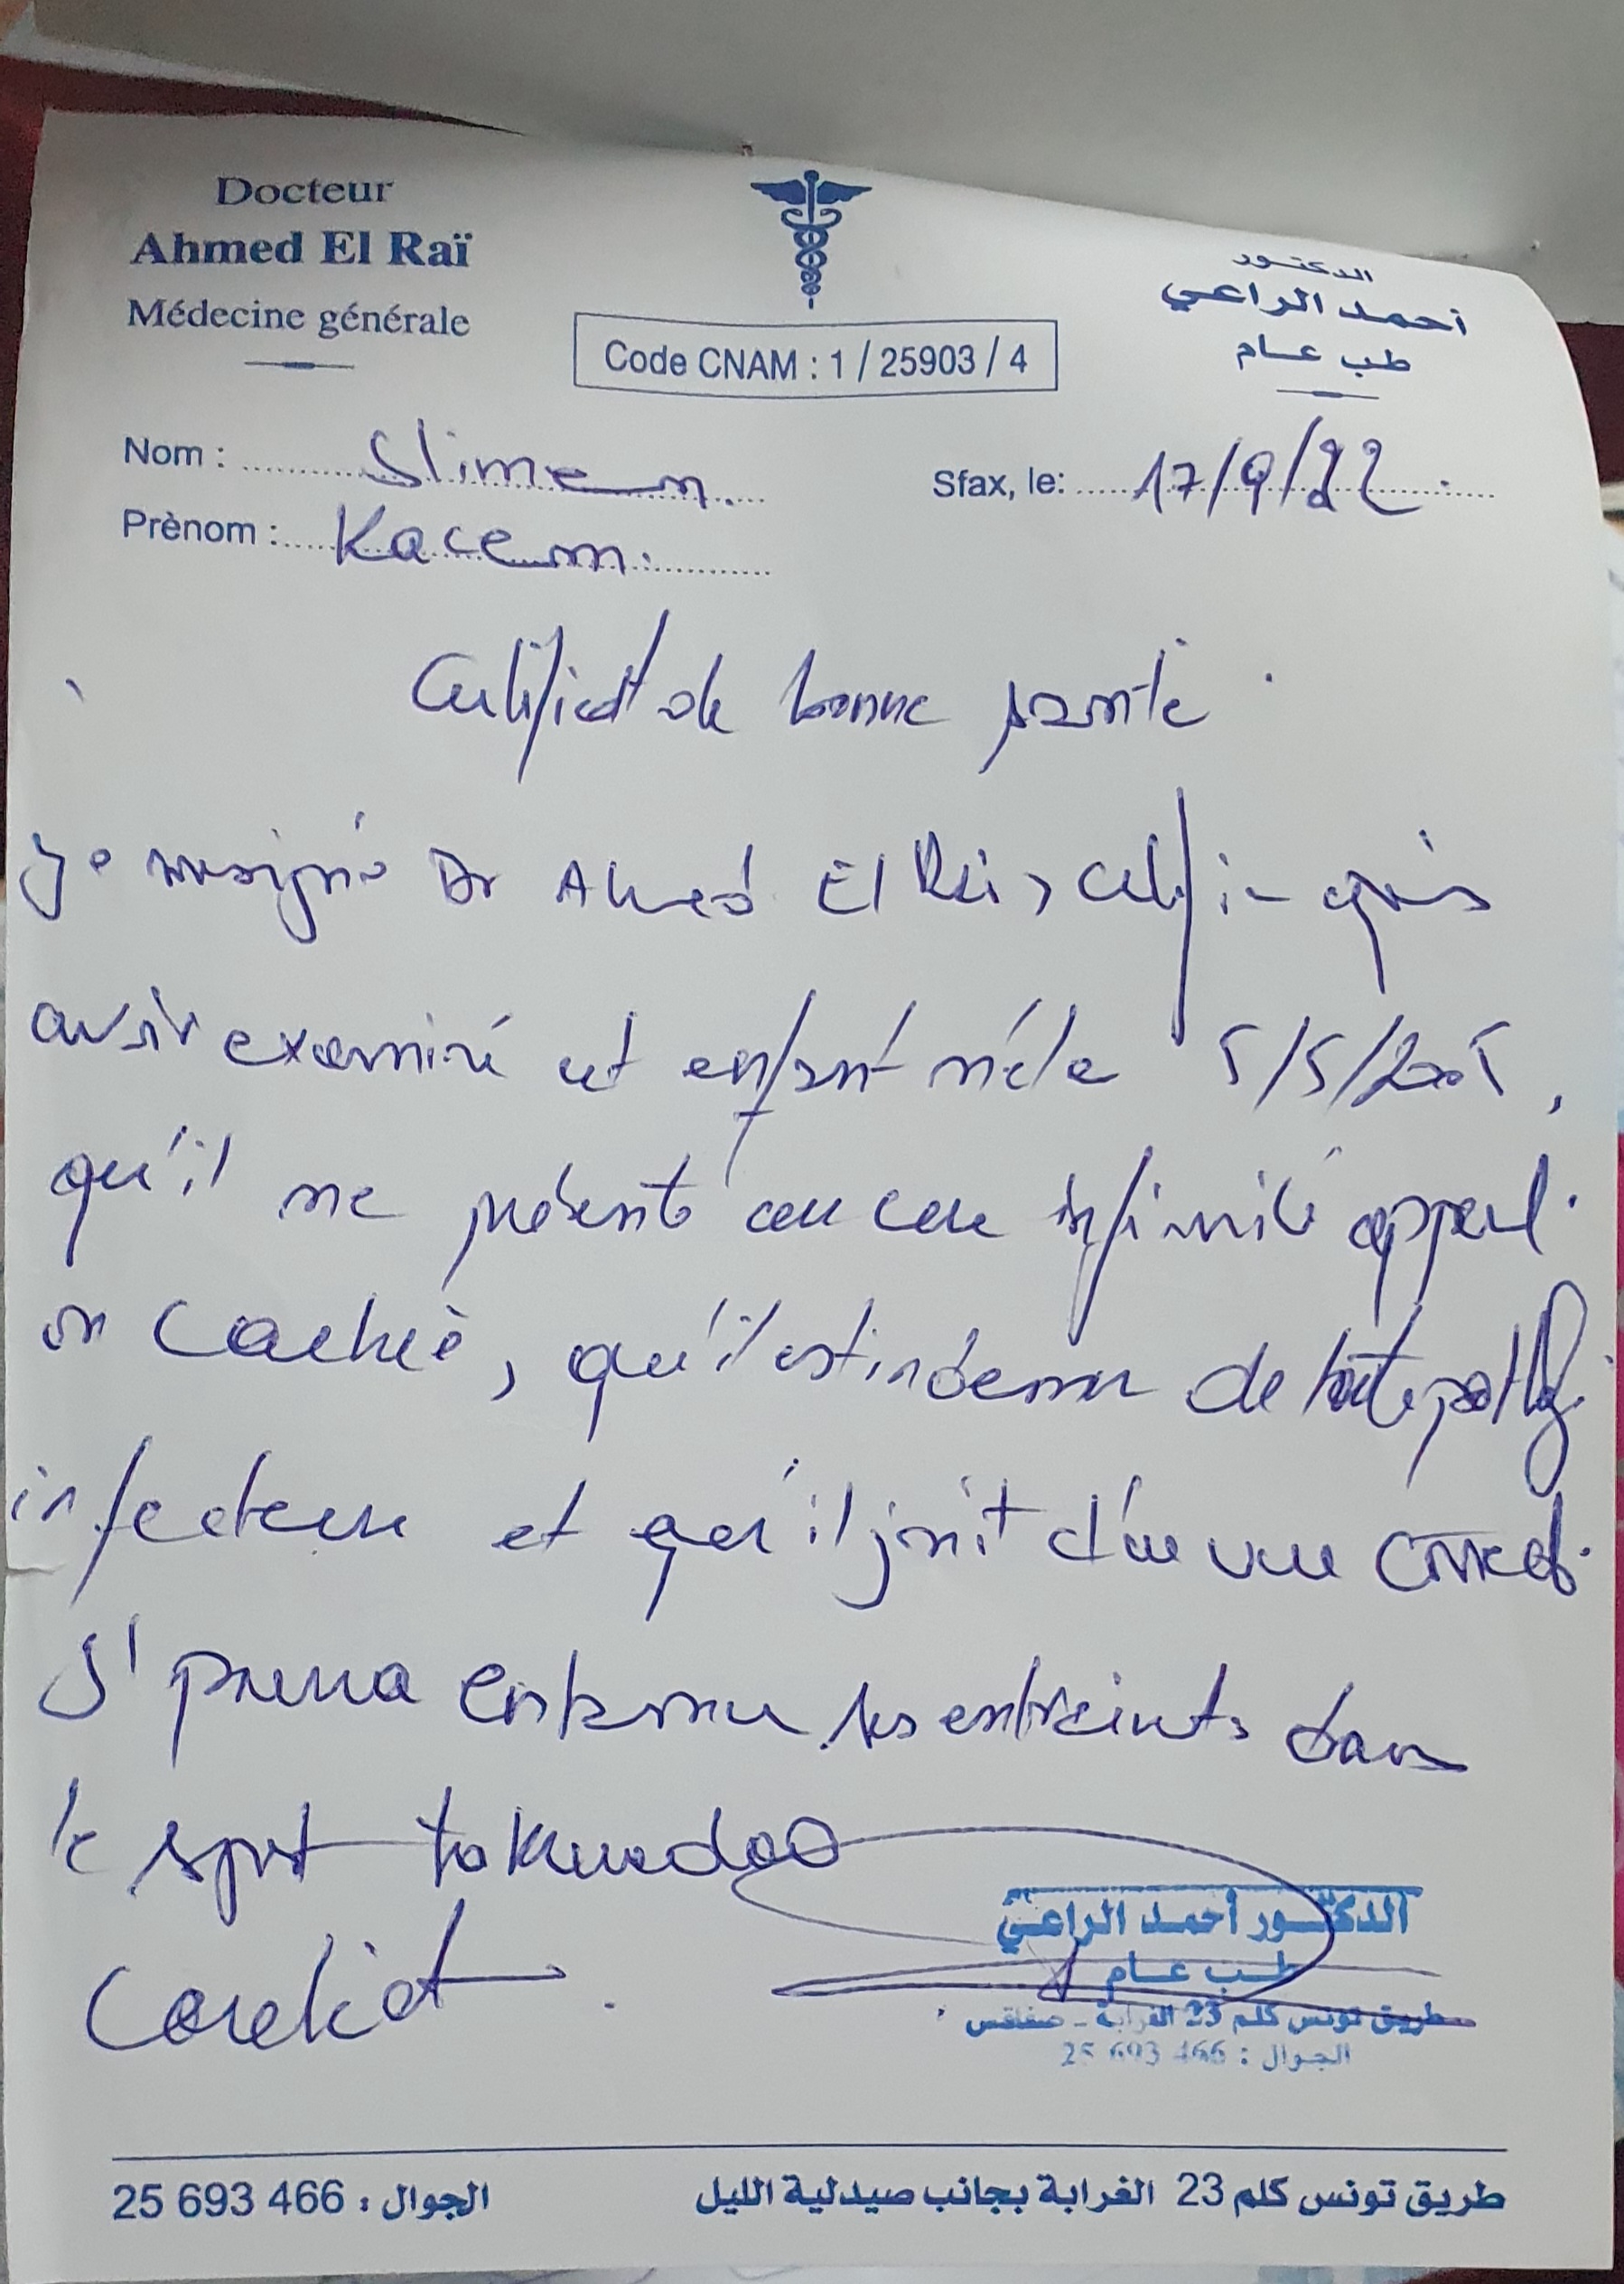 Docteur
Ahmed El Raï
Médecine générale
Code CNAM : 1 / 25903 / 4
الدكتور
أحمد الراعي
طب عام
Nom : Slimen
Sfax, le: 17/9/22
Prènom : Kacem
Certificat de bonne santé
Je soussigné Dr Ahmed El Rai, certifie après
avoir examiné cet enfant né le 5/5/2005,
qu'il ne présente aucune infirmité appart.
ou cachée, qu'il est indemne de toute pathologie
infectieuse et qu'il jouit d'une vue correcte.
les entraints dans
le sport takwendoo
الدكتور أحمد الراعي
طب عام
طريق تونس كلم 23 الغرابة - صفاقس
الجوال : 25 693 466
طريق تونس كلم 23 الغرابة بجانب صيدلية الليل
الجوال : 25 693 466